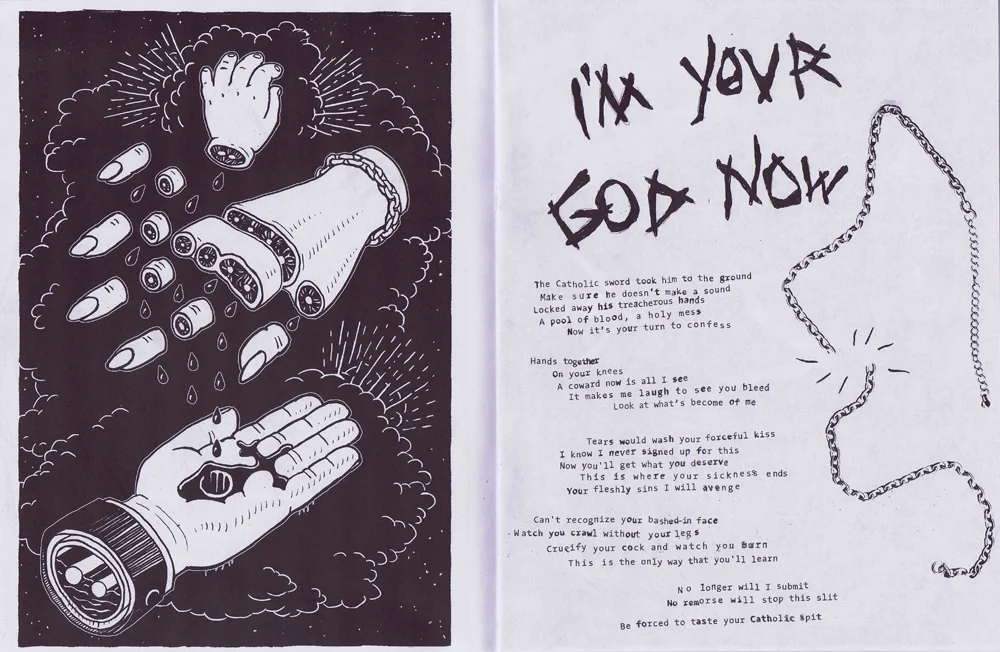 I'M YOUR
GOD NOW
The Catholic sword took him to the ground
Make sure he doesn't make a sound
Locked away his treacherous hands
A pool of blood, a holy mess
Now it's your turn to confess
Hands together
On your knees
A coward now is all I see
It makes me laugh to see you bleed
Look at what's become of me
Tears would wash your forceful kiss
I know I never signed up for this
Now you'll get what you deserve
This is where your sickness ends
Your fleshly sins I will avenge
Can't recognize your bashed-in face
Watch you crawl without your legs
Crucify your cock and watch you burn
This is the only way that you'll learn
No longer will I submit
No remorse will stop this slit
Be forced to taste your Catholic spit